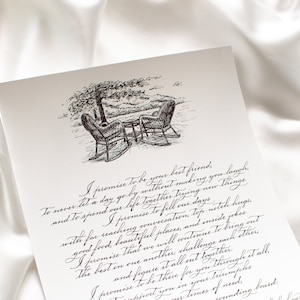 I promise to be your best friend,
to never let a day go by without making you laugh
and to spend our life together trying new things.
I promise to fill our days
with far reaching conversation, top notch hugs,
good food, beautiful places, and inside jokes
I promise that we will continue to bring out
the best in one another, challenge each other,
and figure it all out together.
I promise to be there for you through it all,
to support you in your triumphs
time of need,
sounding board.